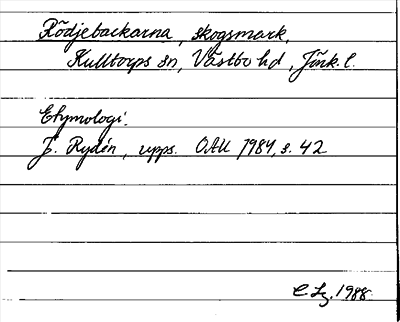 Rödjebackarna, skogsmark,
Kulltorps sn, Västbo hd, Jönk. l.
Etymologi.
J. Rydén, upps. OAU 1984, s. 42
C Lg. 1988